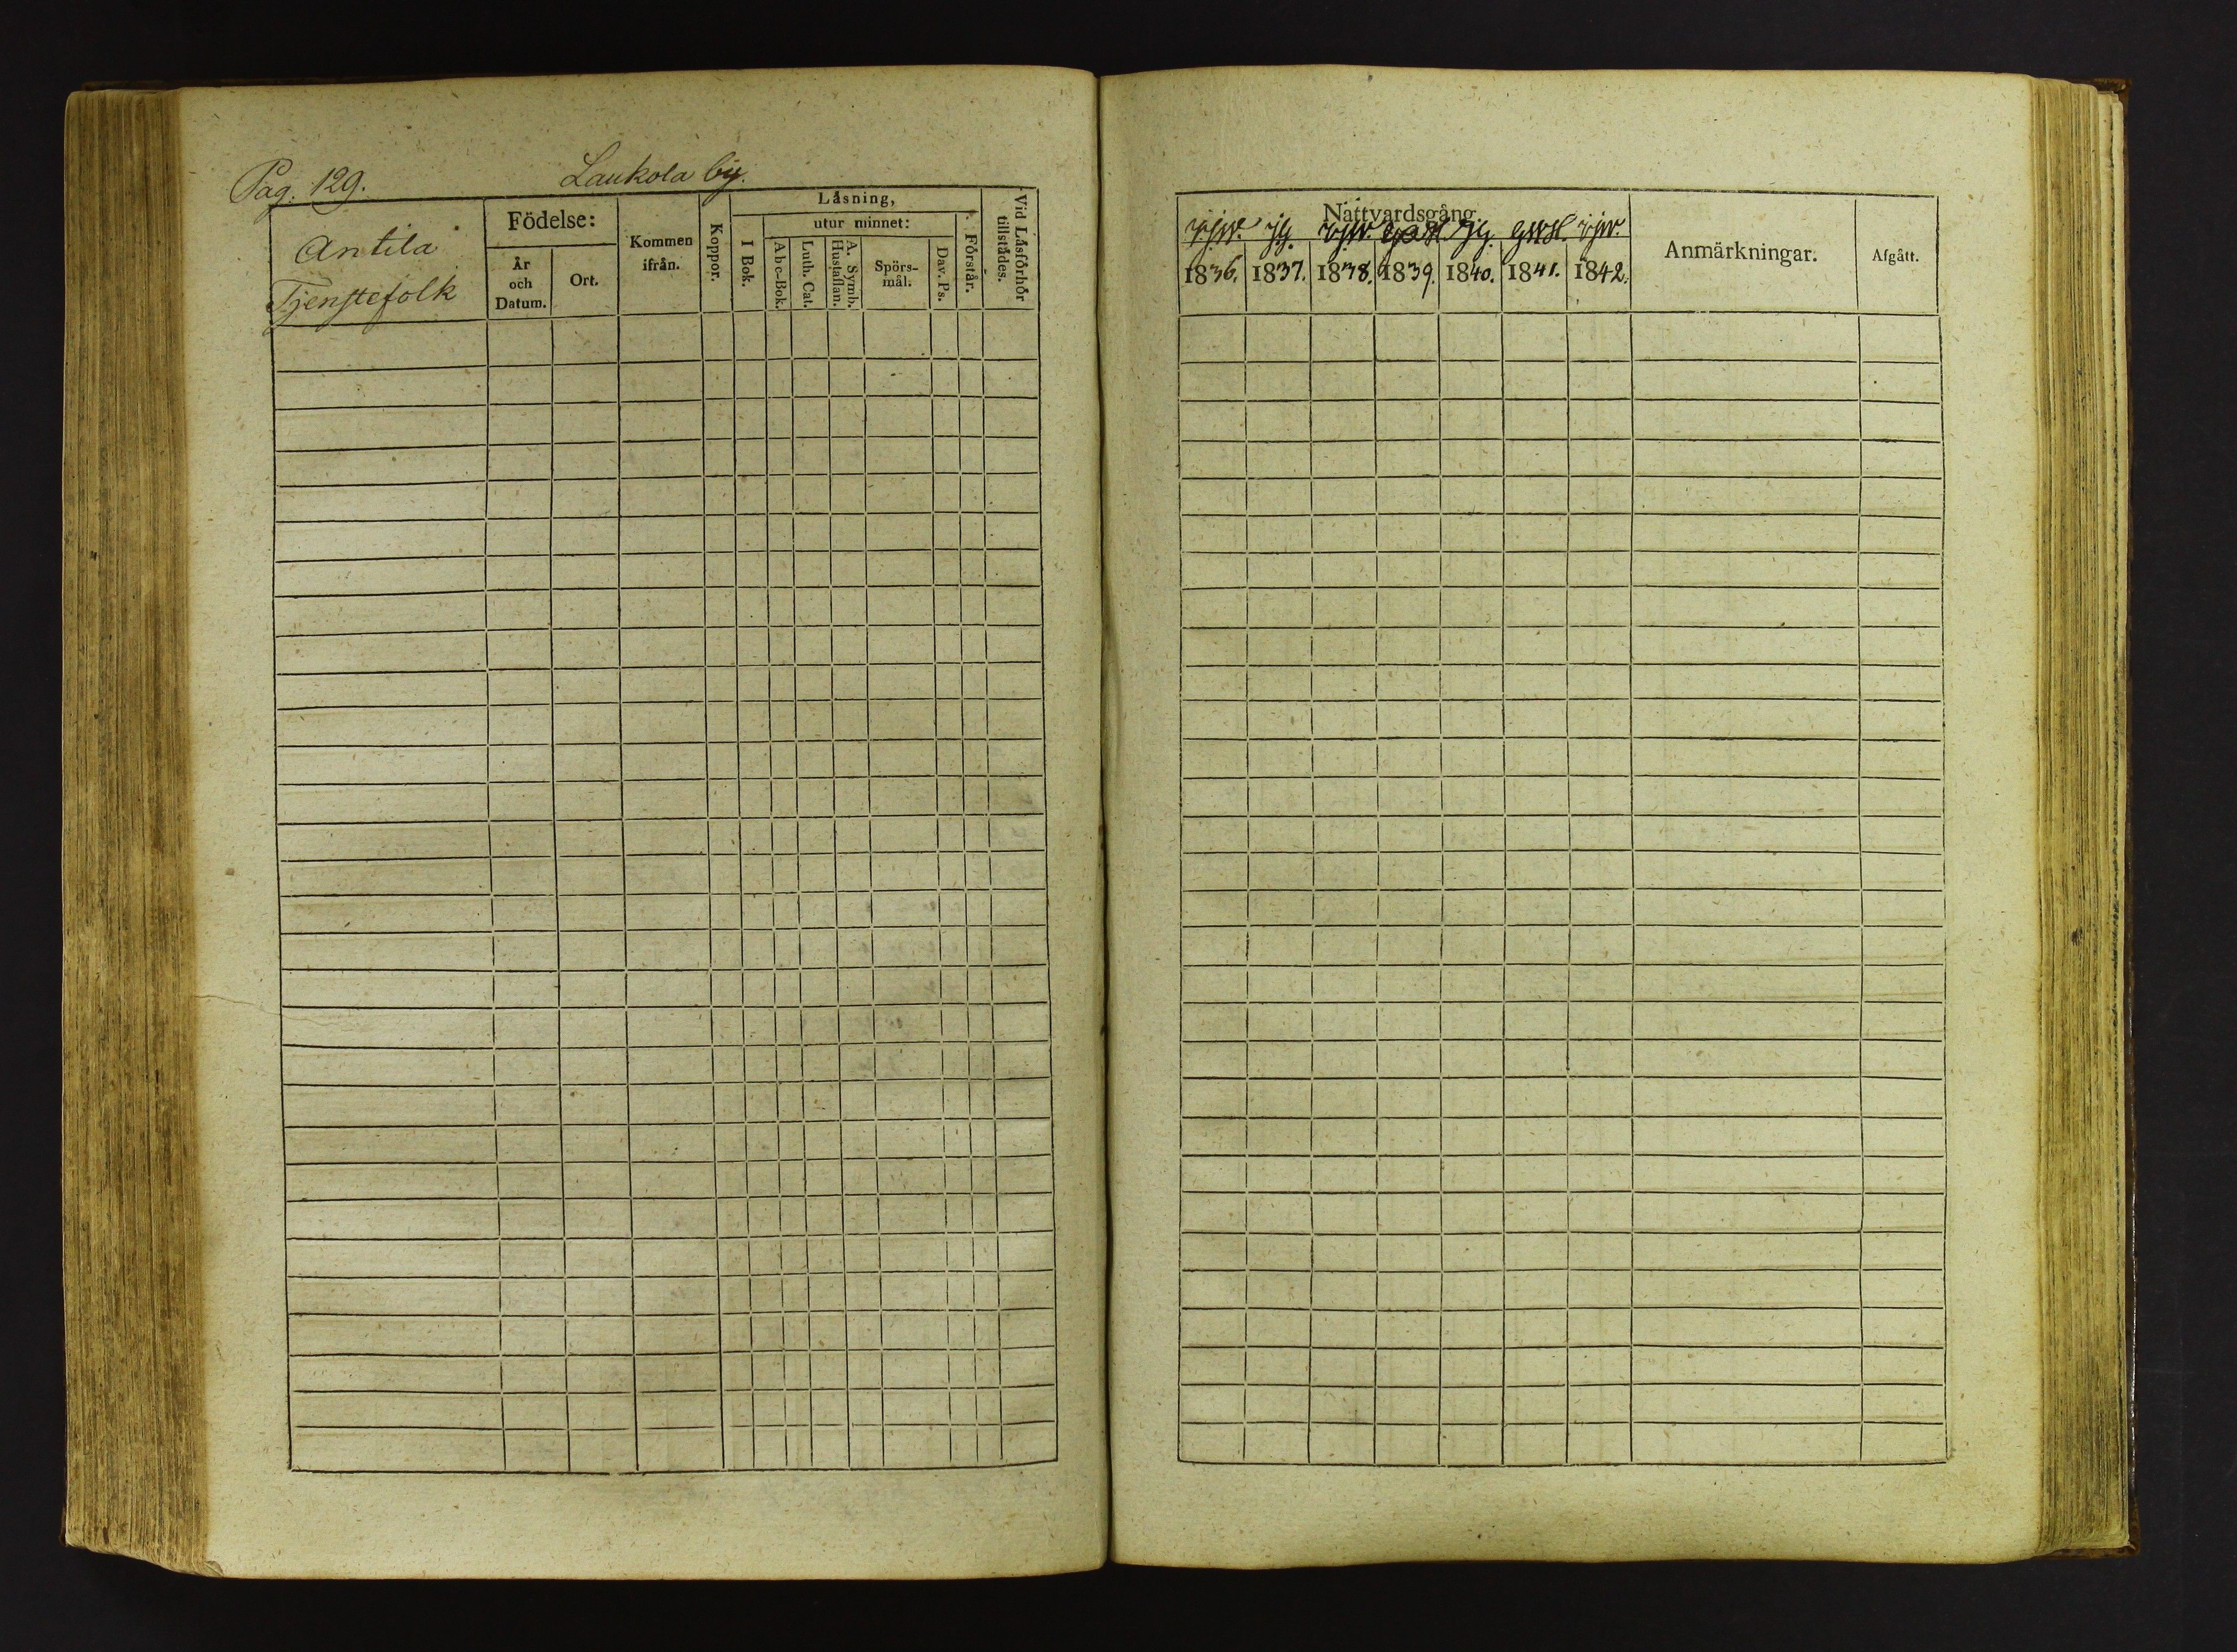 Pag. 129.
Laukola by.
Antila
Tjenstefolk
Födelse:
År
och
Datum.
Ort.
Kommen
ifrån.
Koppor.
Läsning,
I Bok.
utur minnet:
Abc-Bok.
Luth. Cat.
A. Symb.
Hustaflan.
Spörs-
mål.
Dav. Ps.
Förstår.
Vid Läsförhör
tillstädes.
Nattvardsgång.
1836. 1837. 1838. 1839. 1840. 1841. 1842.
Anmärkningar.
Afgått.